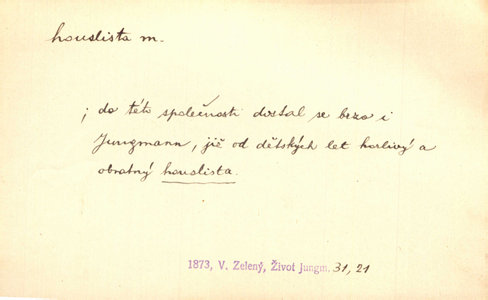 houslista m.
; do této společnosti dostal se brzo i
Jungmann, již od dětských let horlivý a
obratný houslista.
1873, V. Zelený, Život Jungm. 31, 21